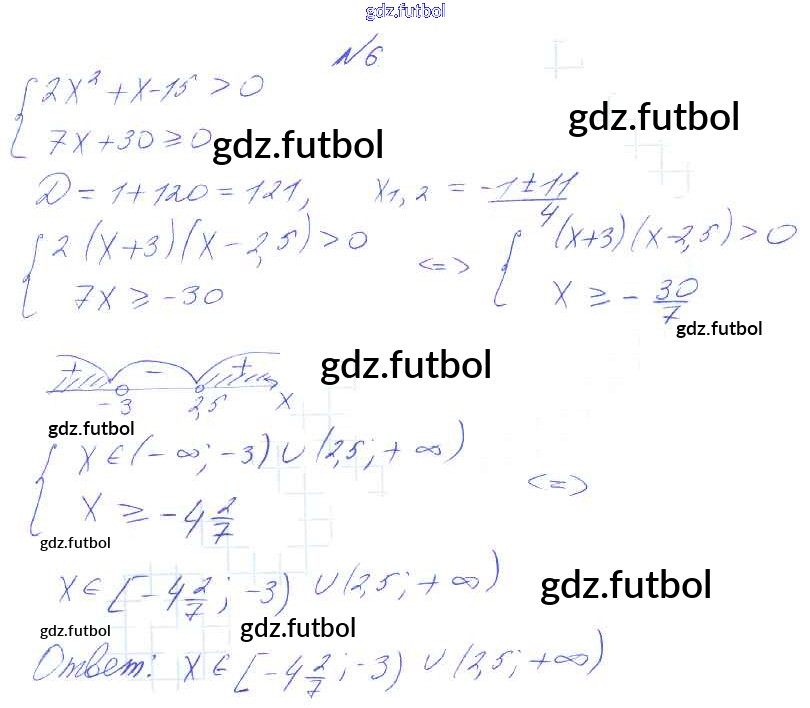 gdz.futbol
№6
{ 2x² + x - 15 > 0
7x + 30 ≥ 0 gdz.futbol gdz.futbol
D = 1 + 120 = 121, x₁,₂ = (-1 ± 11)/4
{ 2(x+3)(x-2,5) > 0 <=> { (x+3)(x-2,5) > 0
7x ≥ -30 x ≥ -30/7
gdz.futbol
+ - + gdz.futbol
-3 2,5 x
gdz.futbol
{ x ∈ (-∞; -3) ∪ (2,5; +∞)
x ≥ -4 2/7 <=>
gdz.futbol
x ∈ [-4 2/7; -3) ∪ (2,5; +∞) gdz.futbol
gdz.futbol gdz.futbol
Ответ: x ∈ [-4 2/7; -3) ∪ (2,5; +∞)